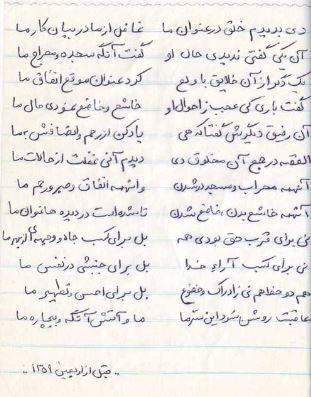 دی بدیدیم خلق در عنوان ما غافل از ما در بیان کار ما
آن یکی گفتی ندیدی حال او گفت آنگه سجده و معراج ما
یک دگر از آن خلایق با ولع کرد عنوان موقع انفاق ما
گفت باری کی عجب ز احوال او خاشع و خاضع بدی حال ما
آن رفیق دیگرش گفتا که هی یاد کن از رحم و انصافش بما
القصه در جمع آن مخلوق دی دیدم آنی غفلت از حالات ما
آنهمه محراب و مسجد در شدن و آنهمه انفاق و صبر و رحم ما
آنهمه خاشع بدن خاضع شدن تا شده است در دیده ها عنوان ما
نی برای قرب حق بودی همه بل برای کسب جاه و وجهه ما
نی برای کسب آراء خدا بل برای جنبشی در نفس ما
هم دو خط هم نی ز ادراک و خضوع بل برای احسن و تطهیر ما
عاقبت روشن شود این سر ما ما و آتش آنگه و بیچاره ما
۱۳۵۹